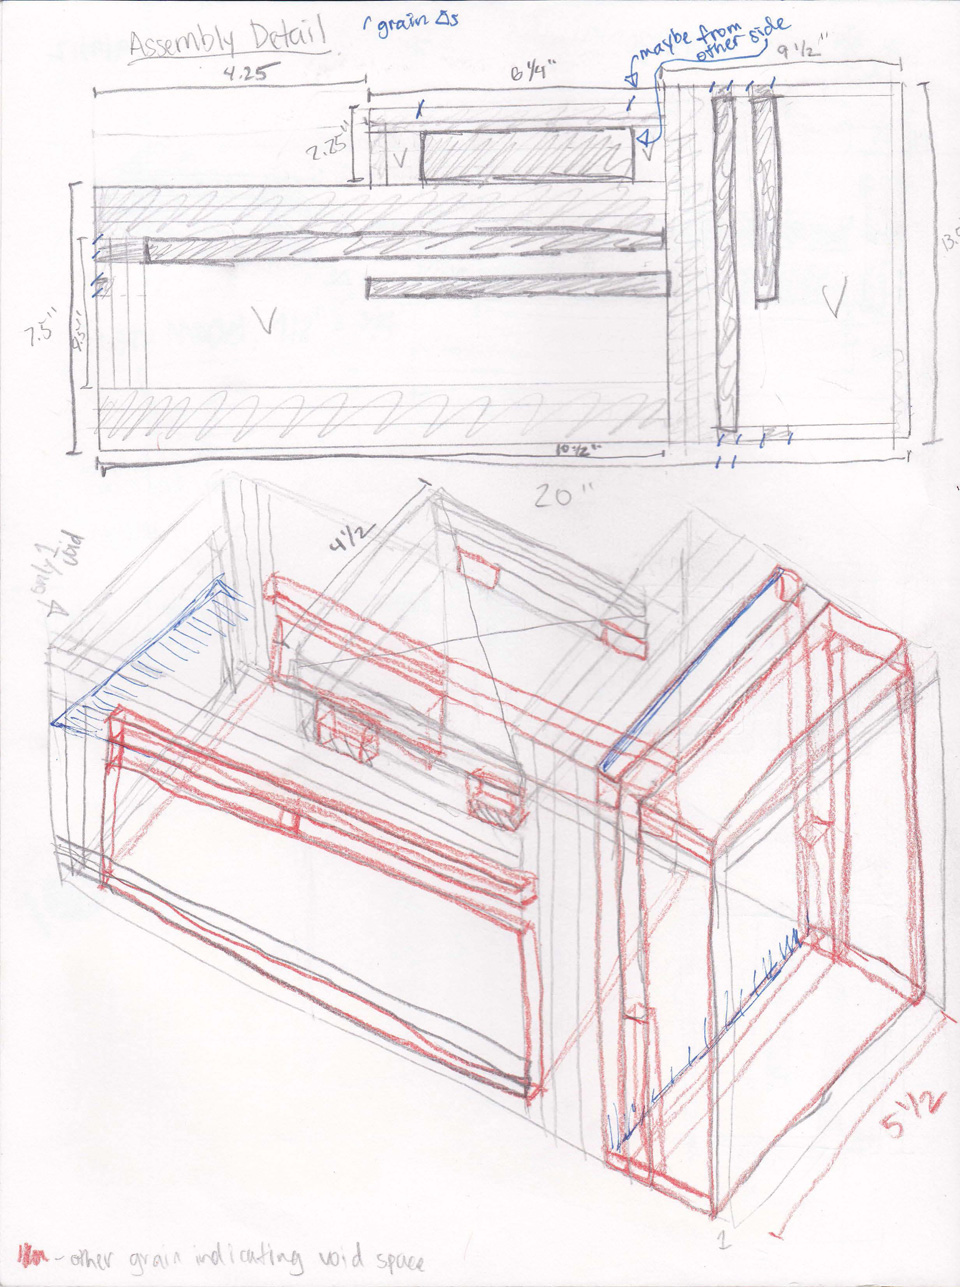 Assembly Detail
grain Δs
maybe from
other side
4.25
6 1/4"
9 1/2"
2.25"
V
V
7.5"
4.5"
V
V
10 1/2"
20"
only 1
void
4 1/2
5 1/2
1
- other grain indicating void space